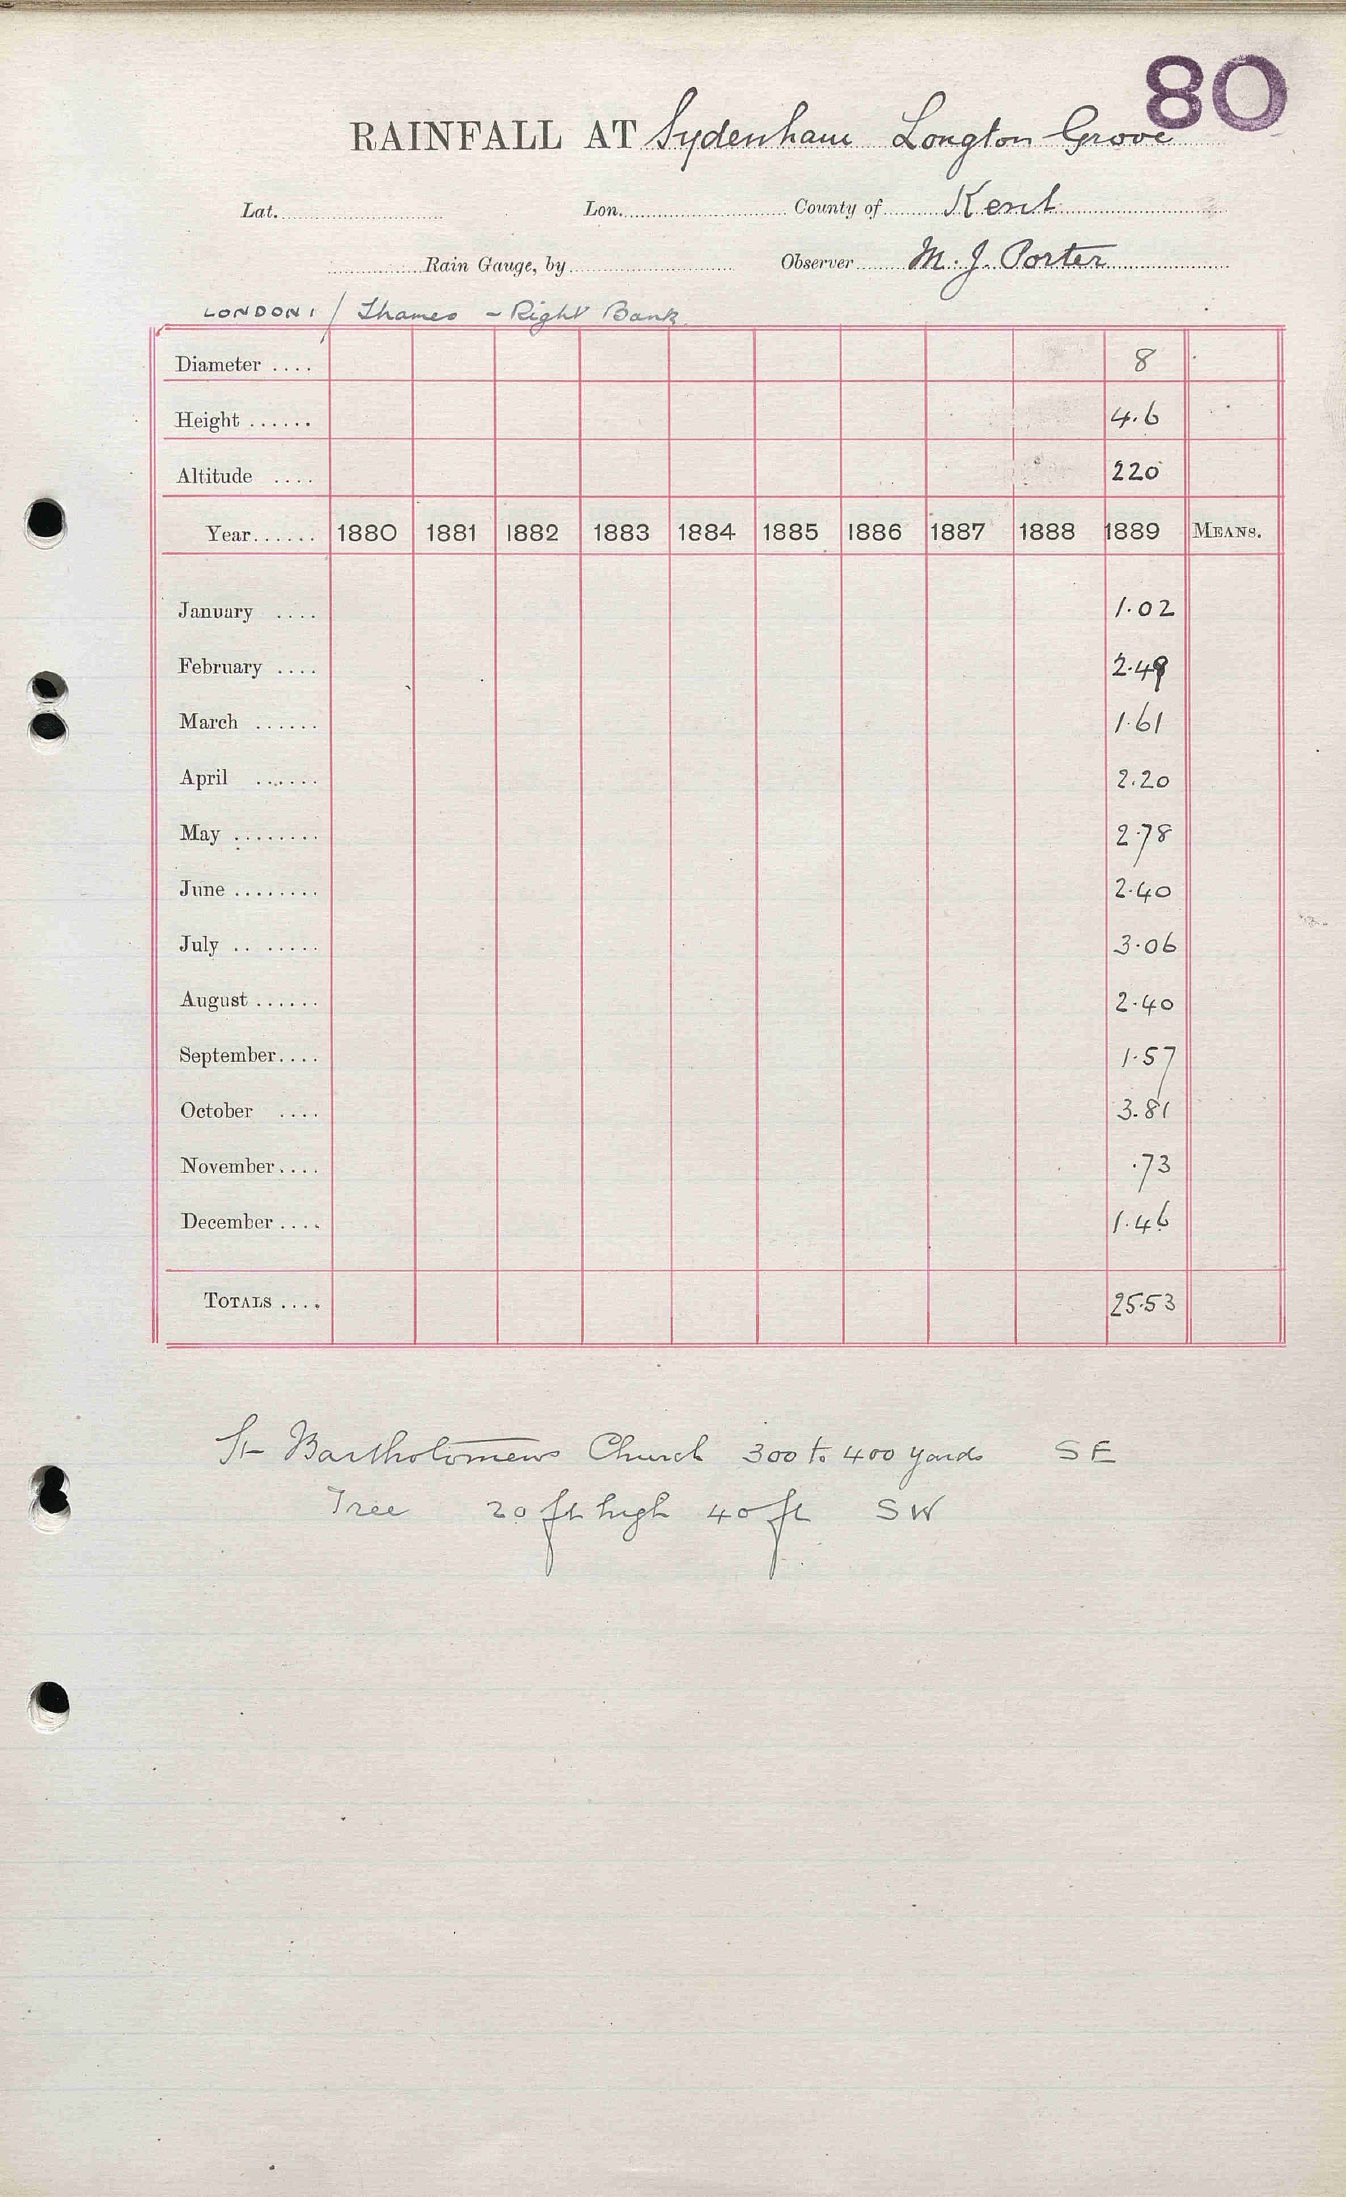 80
RAINFALL AT Sydenham Longton Grove
Lat. Lon. County of Kent
Rain Gauge, by Observer M. J. Porter
LONDON 1 / Thames - Right Bank
Diameter .... 8
Height ...... 4.6
Altitude .... 220
Year...... 1880 1881 1882 1883 1884 1885 1886 1887 1888 1889 MEANS.
January .... 1.02
February .... 2.49
March ...... 1.61
April ...... 2.20
May ........ 2.78
June ........ 2.40
July .. ...... 3.06
August ...... 2.40
September.... 1.57
October .... 3.81
November.... .73
December .... 1.46
TOTALS .... 25.53
St Bartholomews Church 300 to 400 yards SE
Tree 20 ft high 40 ft SW